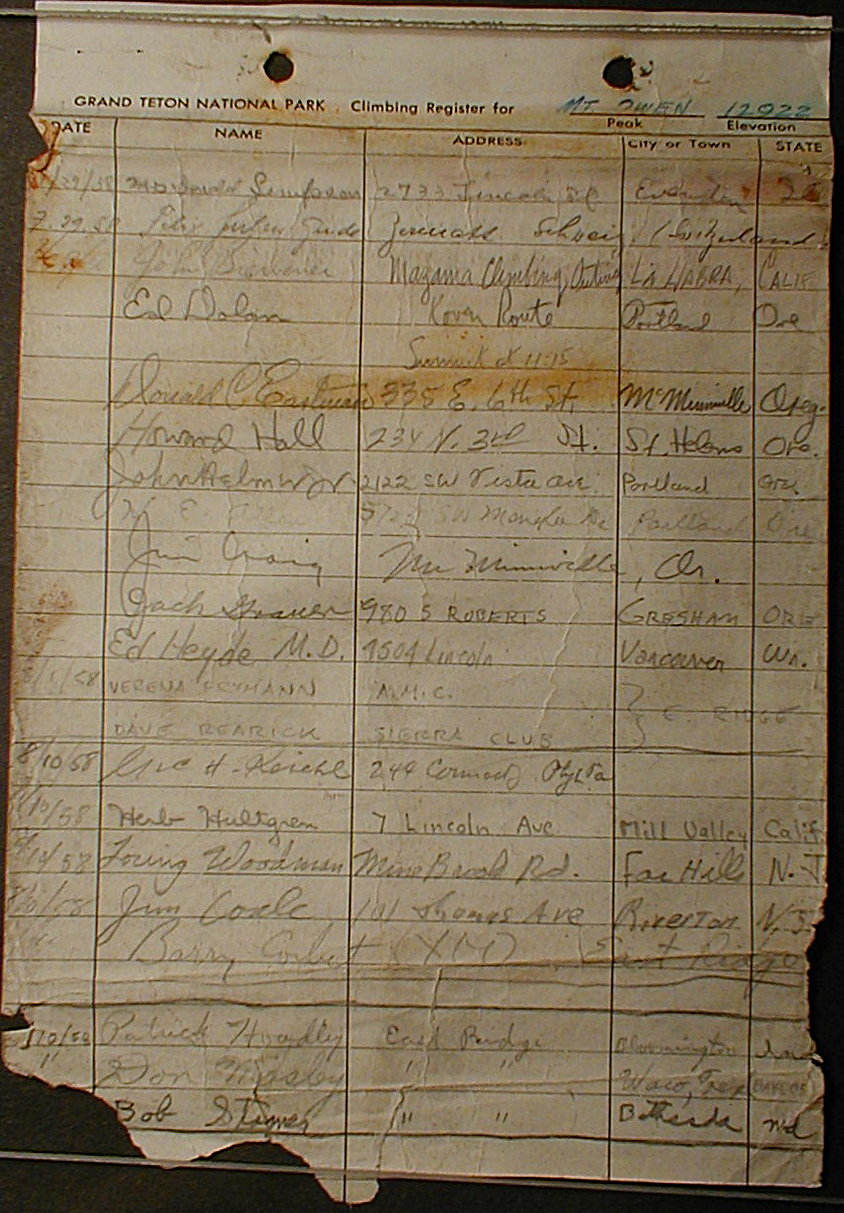 GRAND TETON NATIONAL PARK Climbing Register for MT OWEN 12922
Peak Elevation
DATE NAME ADDRESS City or Town STATE
/29/58 Simpson 2733 Lincoln Evanston
7.29.58 Guide Zermatt Schweiz (Switzerland)
John Mazama Climbing Outing LA HABRA, CALIF
Ed Dolan Koven Route Portland Ore
Summit at 11:15
Donald C. Eastman 335 E. 6th St. McMinnville Oreg.
Howard Hall 234 N. 3rd St. St. Helens Ore.
John 2122 SW Vista Ave Portland Ore.
SW Portland Ore
Jim Craig McMinnville, Or.
Jack Grauer 980 S ROBERTS GRESHAM ORE
Ed Heyde M.D. 4504 Lincoln Vancouver Wn.
/58 VERENA A.M.C.
DAVE REARICK SIERRA CLUB } E. RIDGE
8/10/58 Eric H. 244
/10/58 Herb Hultgren 7 Lincoln Ave Mill Valley Calif
/10/58 Loring Woodman Mine Brook Rd. Far Hills N.J
/10/58 Jim 101 Thomas Ave RIVERTON N.J.
" Barry Corbet (XM) East Ridge
/10/58 Patrick Hoadly East Ridge Bloomington Ind
" Don Mosley " " Waco, Tex (BAYLOR)
Bob " " Bethesda Md